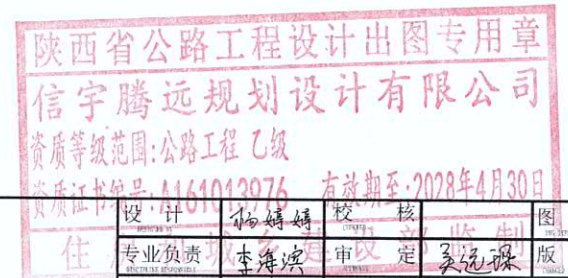 陕西省公路工程设计出图专用章
信宇腾远规划设计有限公司
资质等级范围:公路工程 乙级
资质证书编号:A161013976 有效期至:2028年4月30日
设计 杨婷婷 校核 图
住 城乡建设部监制
专业负责 李海滨 审定 版